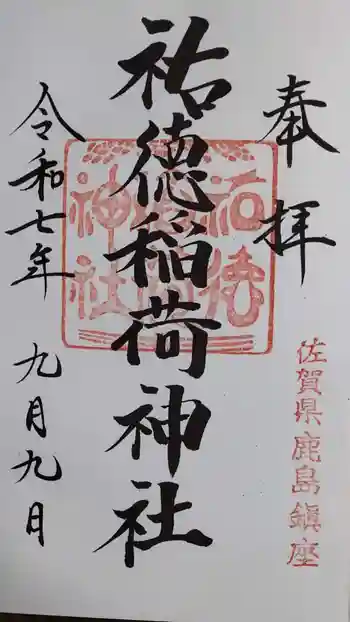 奉拝
佐賀県鹿島鎮座
祐徳稲荷神社
祐徳稲荷神社
令和七年 九月九日